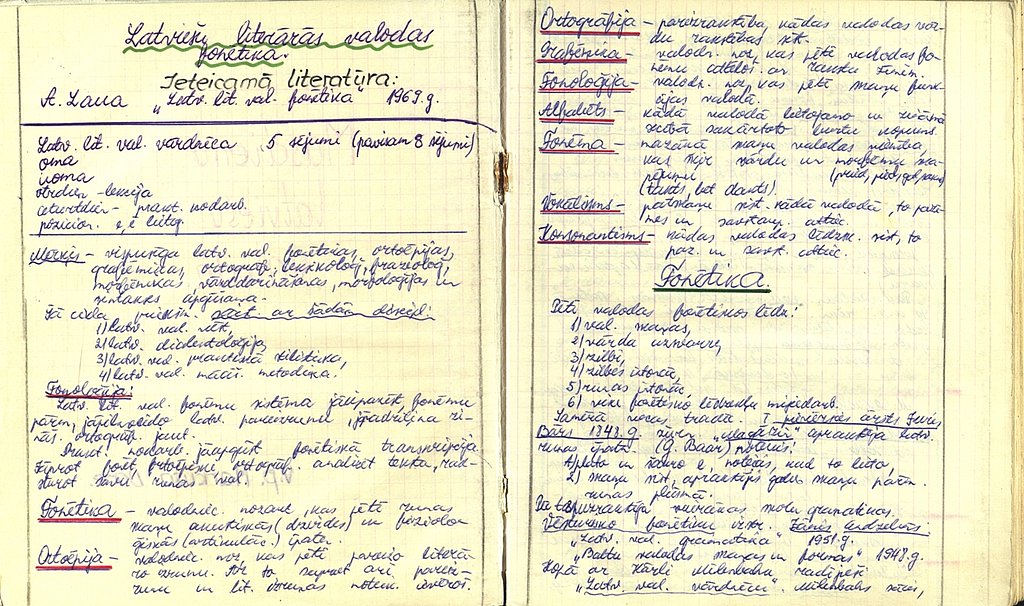 Latviešu literārās valodas
fonētika.
Ieteicamā literatūra:
A. Laua „Latv. lit. val. fonētika" 1969. g.
Latv. lit. val. vārdnīca 5 sējumi (pavisam 8 sējumi)
oma
uoma
otrdien - lekcija
ceturtdien - prakt. nodarb.
pozicion. e, ē lietoj
Mērķis - vispusīga latv. val. fonētikas, ortoēpijas,
grafēmikas, ortogrāf., leksikoloģ., frazeoloģ.,
morfēmikas, vārddarināšanas, morfoloģijas un
sintakses apgūšana.
Šā cikla priekšm. saist. ar šādām discipl.:
1) latv. val. vēst.,
2) latv. dialektoloģija,
3) latv. val. praktiskā stilistika,
4) latv. val. mācīš. metodika.
Fonoloģija:
Latv. lit. val. fonēmu sistēma jāsaprot fonēmu
ortogrāf. jaut.
Prakt. nodarb. jāapgūst fonētiskā transkripcija
fonēt., ortoēpisk., ortogrāf. analizēt tekstu,
savu runas val.
Fonētika - valodniec. nozare, kas pētī runas
skaņu akustiskās (dzirdes) un fizioloģ
ģiskās (artikulāc.) īpatn.
Ortoēpija - valodniec. noz., kas pētī pareizo literā-
ro izrunu. Ar to saprot arī parei-
zu un lit. izrunas noteik. ievēroš.
Ortogrāfija - pareizrakstība, kādas valodas vār-
du rakstības sist.
Grafēmika - valodn. noz., kas pētī valodas fo-
nēmu attēloš. ar rakstu zīmēm.
Fonoloģija - valodn. noz., kas pētī skaņu funk-
cijas valodā.
Alfabēts - kādā valodā lietojamo un noteiktā
secībā sakārtoto burtu kopums.
Fonēma - mazākā skaņu valodas vienība,
kas šķir vārdu un morfēmu no-
zīmi
Vokālisms - patskaņu sist. kādā valodā, to pazī-
mes un savstarp. attiec.
Konsonantisms - kādas valodas līdzsk. sist., to
paz. un savst. attiec.
Fonētika.
Pētī valodas fonētiskos līdz.:
1) val. skaņas,
2) vārda uzsvaru,
3) zilbi,
4) zilbes intonāc.,
5) runas intonāc.,
6) visu fonētisko līdzekļu mijiedarb.
Samērā veca tradic. I pievērsās ārsts Juris
Bārs 1848. g. žurn. „Magazin" aprakstīja latv.
runas īpatn. (G. Baar) noteica:
1) plato un šauro e, noteic., kad to lieto,
2) skaņu sist., aprakstījis gadīj. skaņu pārm.
runas plūsmā.
Vēsturisko fonētiku izstr. Jānis Endzelīns
„Latv. val. gramatika" 1951. g.
„Baltu valodas skaņas un formas" 1948. g.
Kopā ar Kārli Mīlenbahu radījuši
„Latv. val. vārdnīcu". Mīlenbahs sācis,